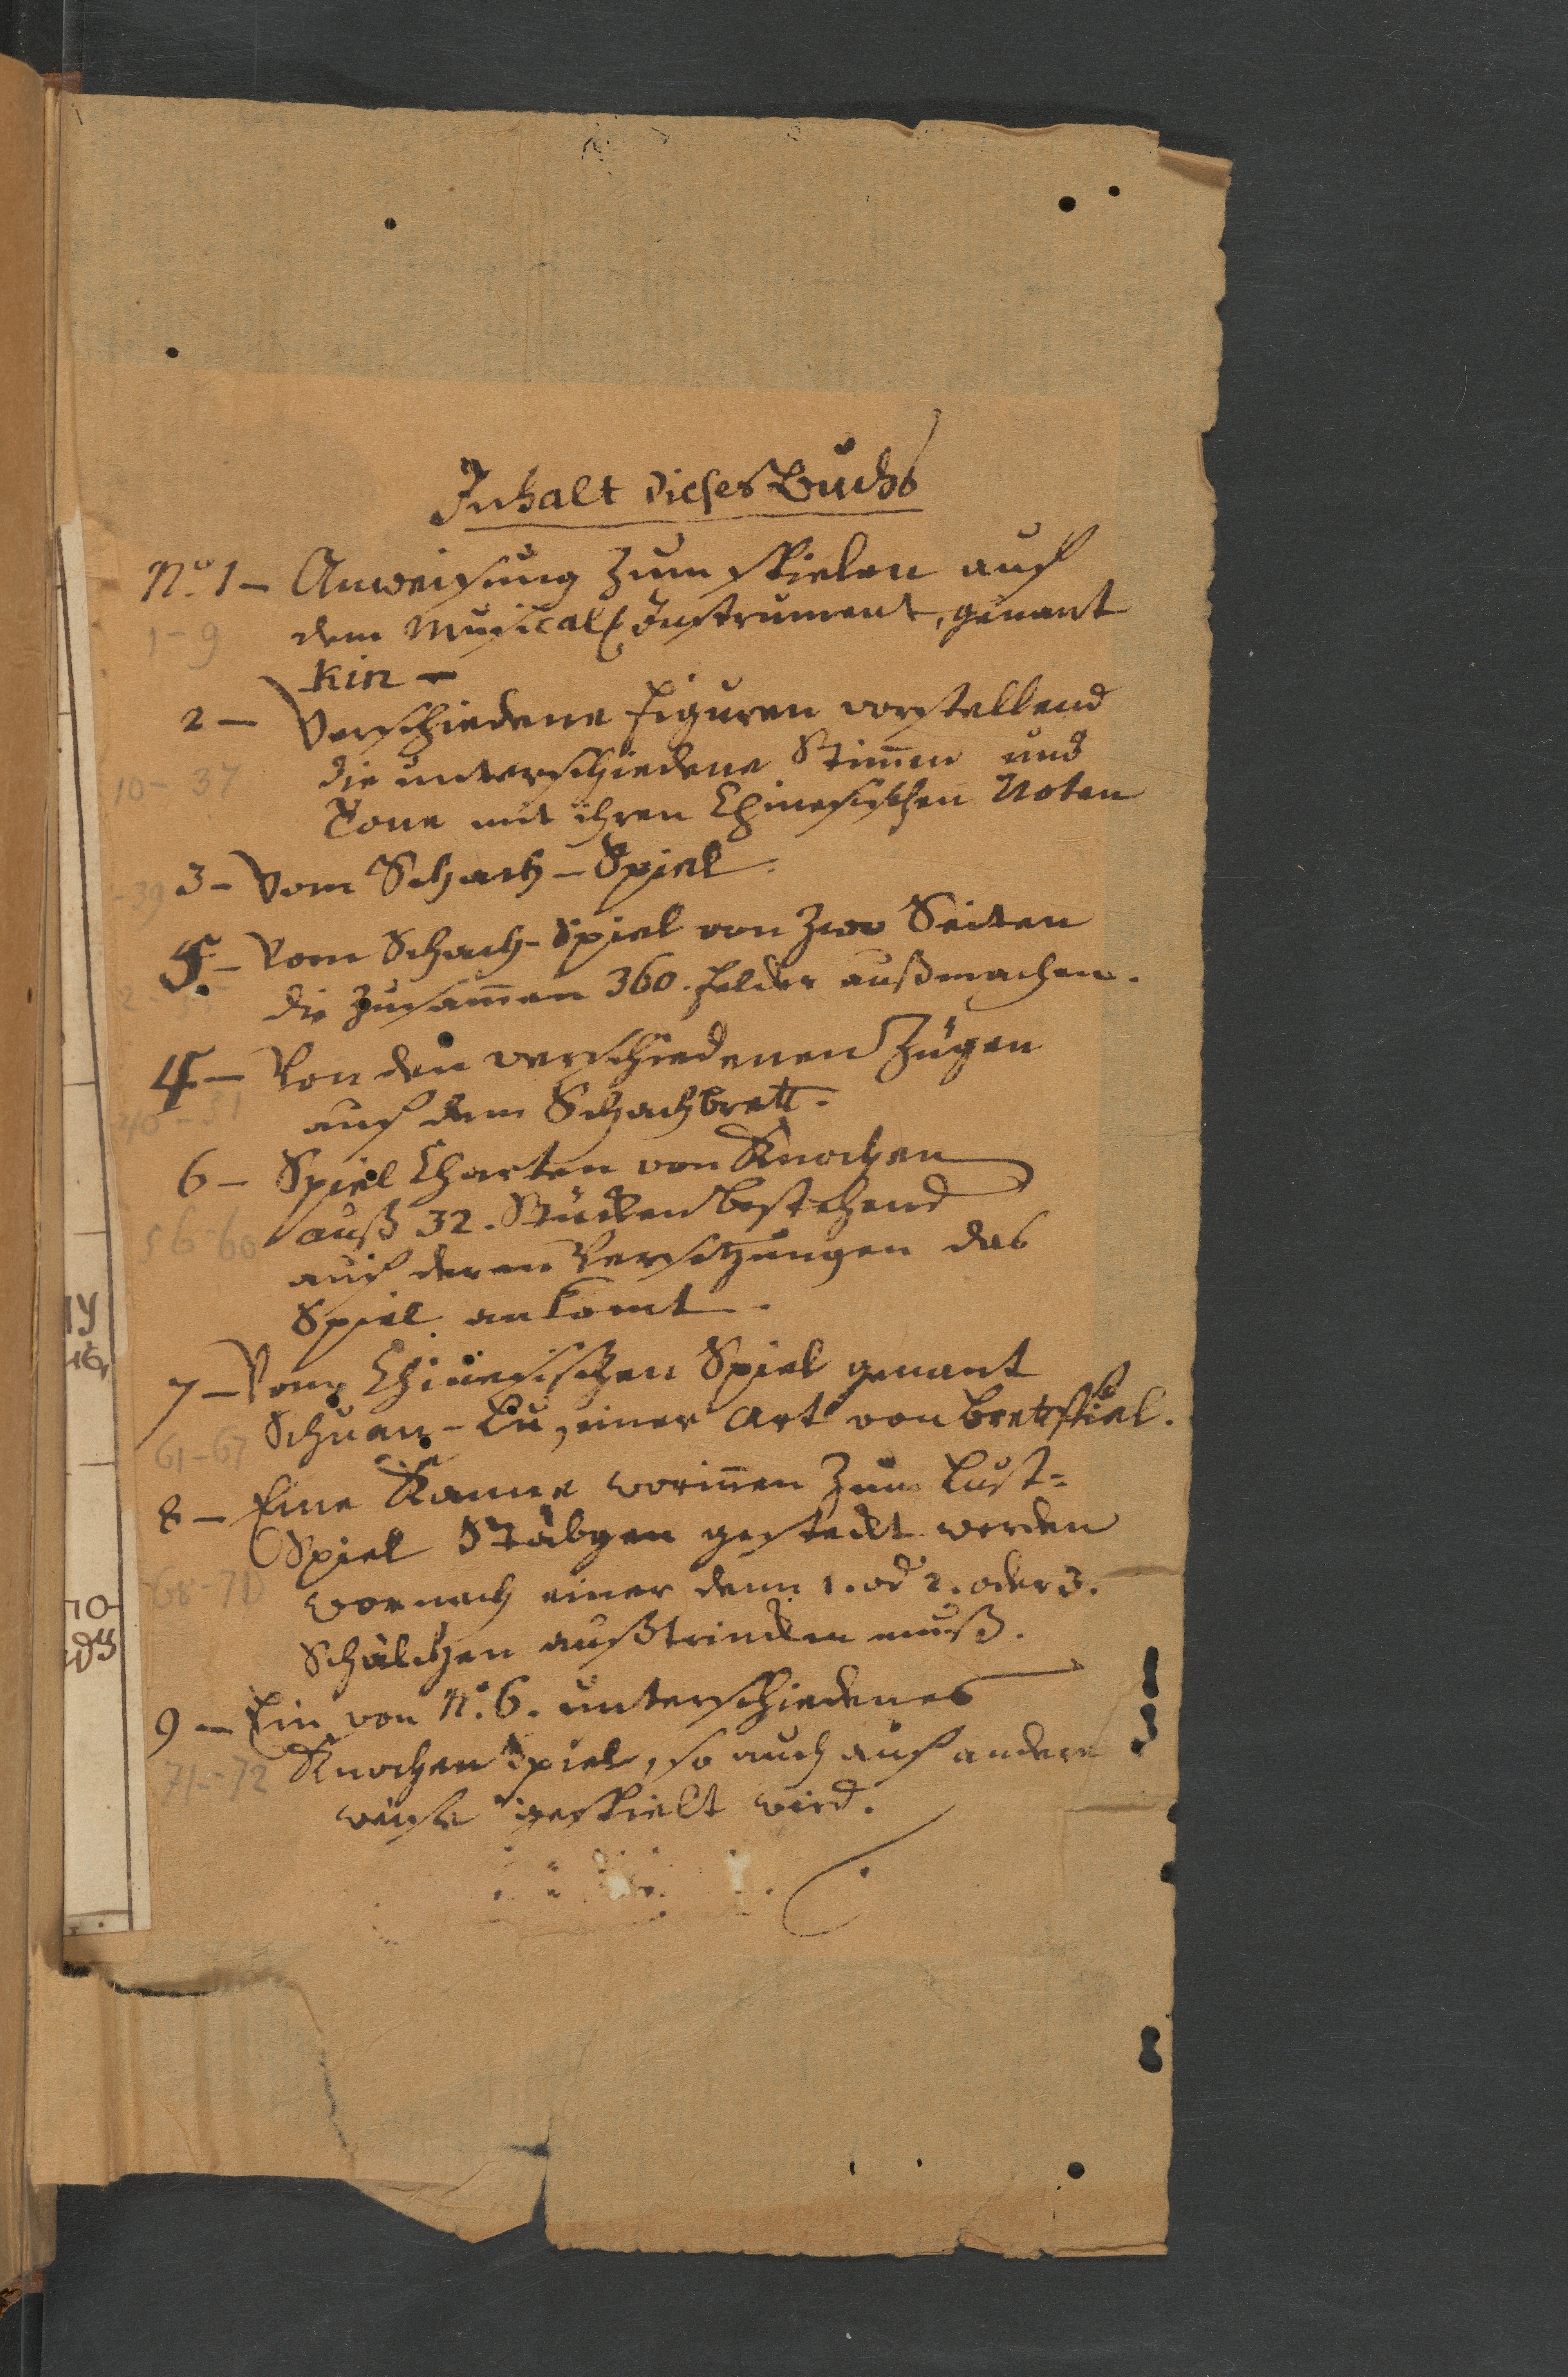 Inhalt dieses Buchs
No. 1 – Anweisung zum spielen auf
1-9
dem Musical. Instrument, genant
kin –
2 – Verschiedene Figuren vorstellend
die unterschiedene Stim̅en und
10-37
Tone mit ihren Chinesischen Noten
3 – Vom Schach-Spiel.
-39
5. – Vom Schach-Spiel von zwo Seiten
die zusam̅en 360. felder außmachen.
4 – Von den verschiedenen Zügen
auf dem Schachbrett.
40-51
6 – Spiel Charten von Knochen
auß 32. Stücken bestehend
56-60
auf deren Versetzungen das
Spiel ankomt.
7 – Vom Chinesischen Spiel genant
Schuan-Lu, einer Art von bretspiel.
61-67
8 – Eine Kanne worin̅en zum Lust=
Spiel Stäbgen gesteckt werden
wornach einer denn 1. od 2. oder 3.
68-71
Schälchen außtrincken muß.
9 – Ein von No. 6. unterschiedenes
Knochen Spiel, so auch auf andere
71-72
weise gespielt wird.